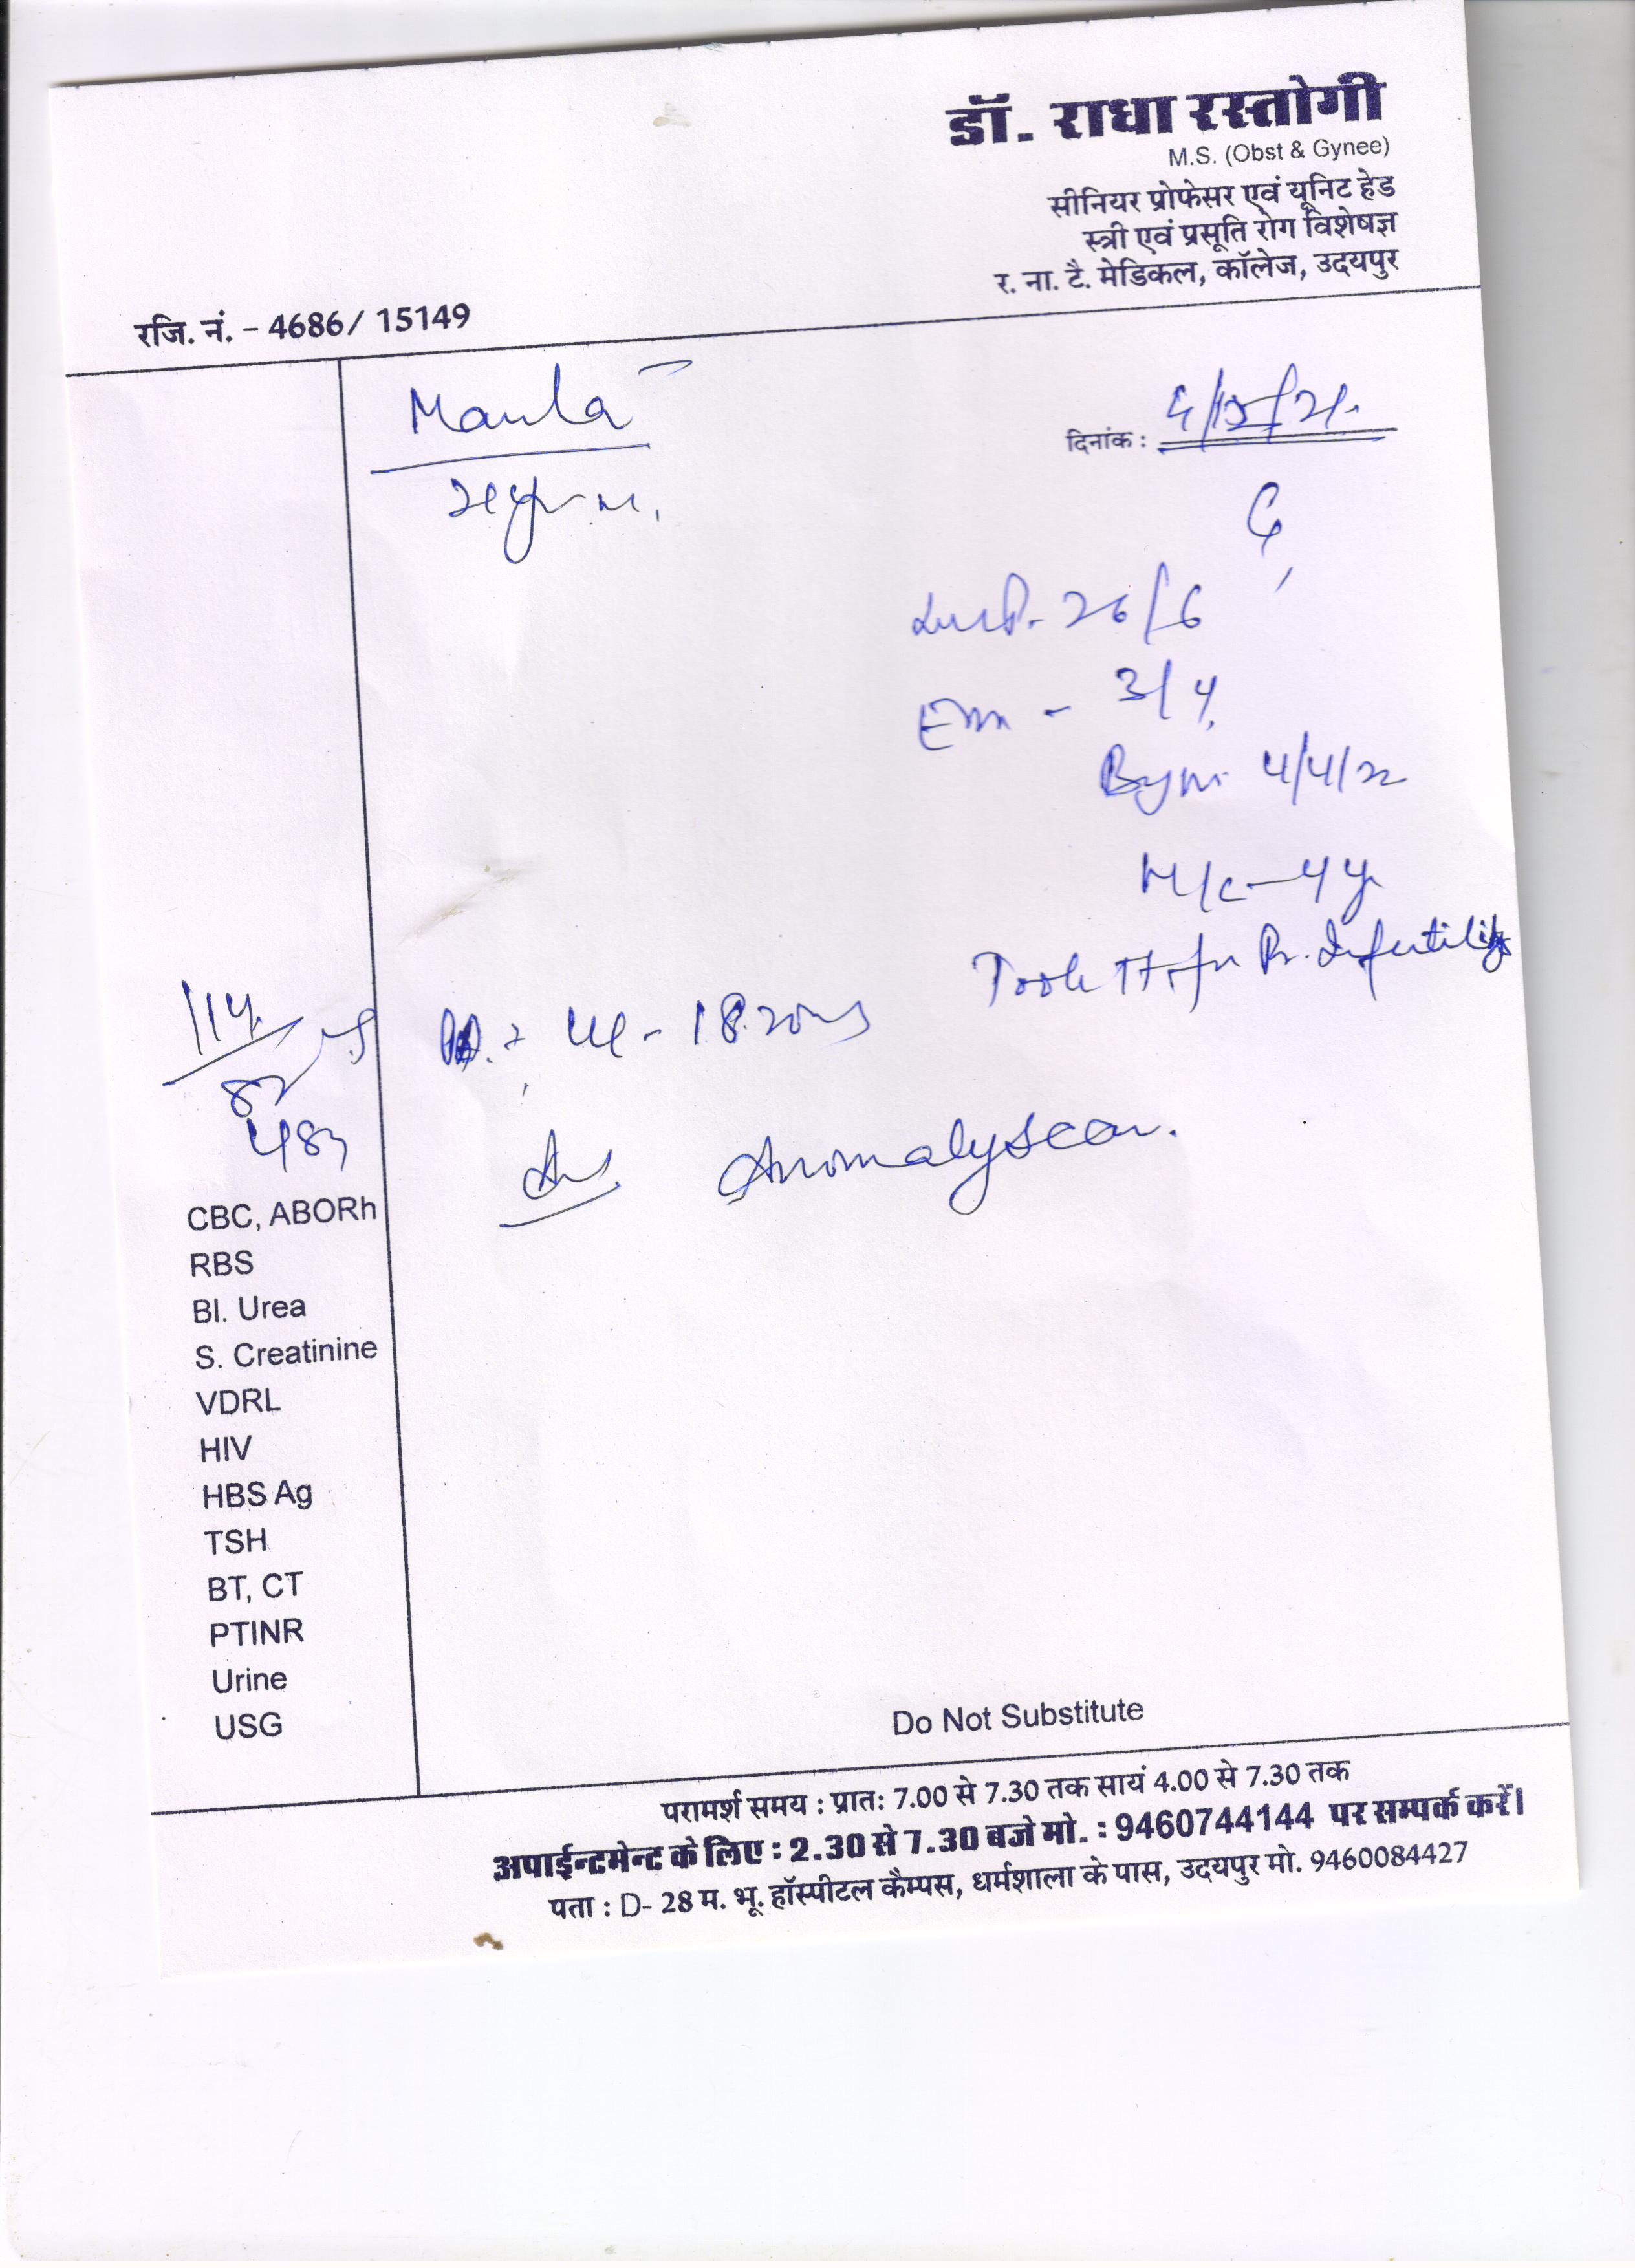 डॉ. राधा रस्तोगी
M.S. (Obst & Gynee)
सीनियर प्रोफेसर एवं यूनिट हेड
स्त्री एवं प्रसूति रोग विशेषज्ञ
र. ना. टै. मेडिकल, कॉलेज, उदयपुर
रजि. नं. - 4686/ 15149
दिनांक :
26/6
3/4
4/4/22
M/c - 4y
Infertility
114
82
Anomaly scan.
CBC, ABORh
RBS
Bl. Urea
S. Creatinine
VDRL
HIV
HBS Ag
TSH
BT, CT
PTINR
Urine
USG
Do Not Substitute
परामर्श समय : प्रातः 7.00 से 7.30 तक सायं 4.00 से 7.30 तक
अपाईन्टमेन्ट के लिए : 2.30 से 7.30 बजे मो. : 9460744144 पर सम्पर्क करें।
पता : D- 28 म. भू. हॉस्पीटल कैम्पस, धर्मशाला के पास, उदयपुर मो. 9460084427